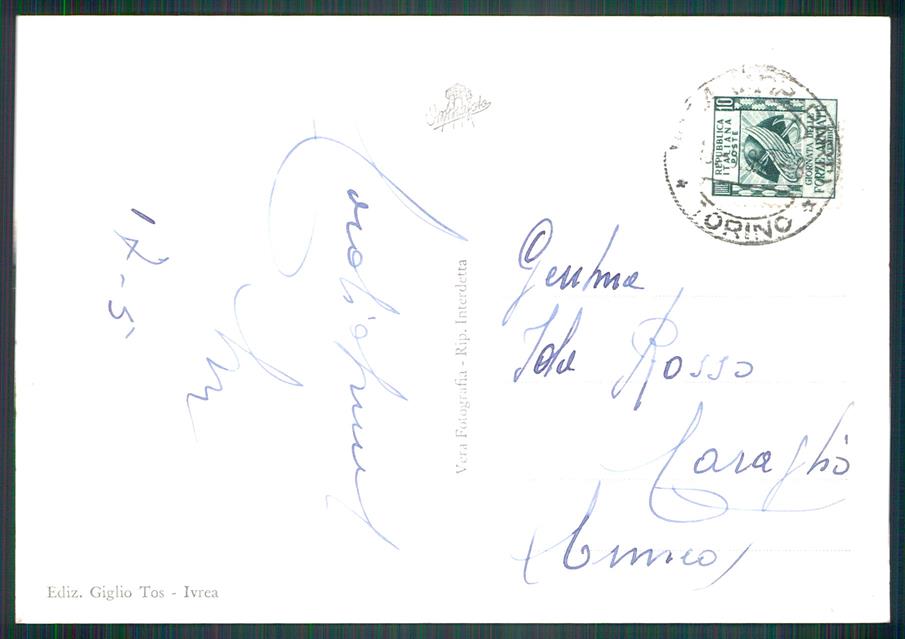 REPUBBLICA
ITALIANA
POSTE
10
GIORNATA DELLE
FORZE ARMATE
TORINO
Vera Fotografia - Rip. Interdetta
Cordialmente
Gentma
Iole Rosso
Caraglio
(Cuneo)
Ediz. Giglio Tos - Ivrea